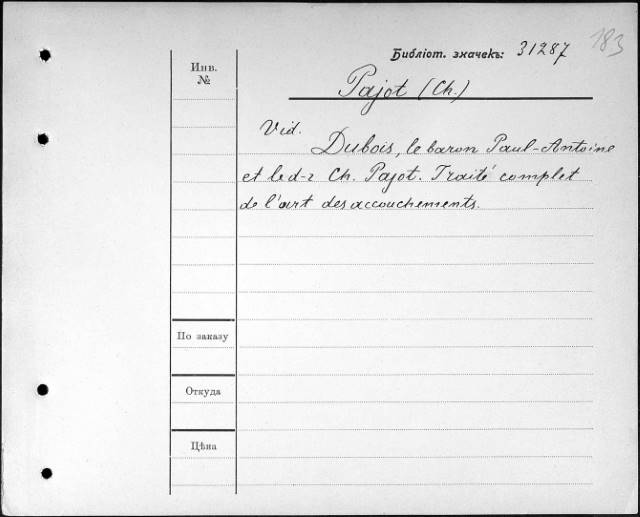 183
Библіот. значекъ: 31287
Инв.
№
Pajot (Ch.)
Vid.
Dubois, le baron Paul-Antoine
et le d-r Ch. Pajot. Traité complet
de l'art des accouchements.
По заказу
Откуда
Цѣна